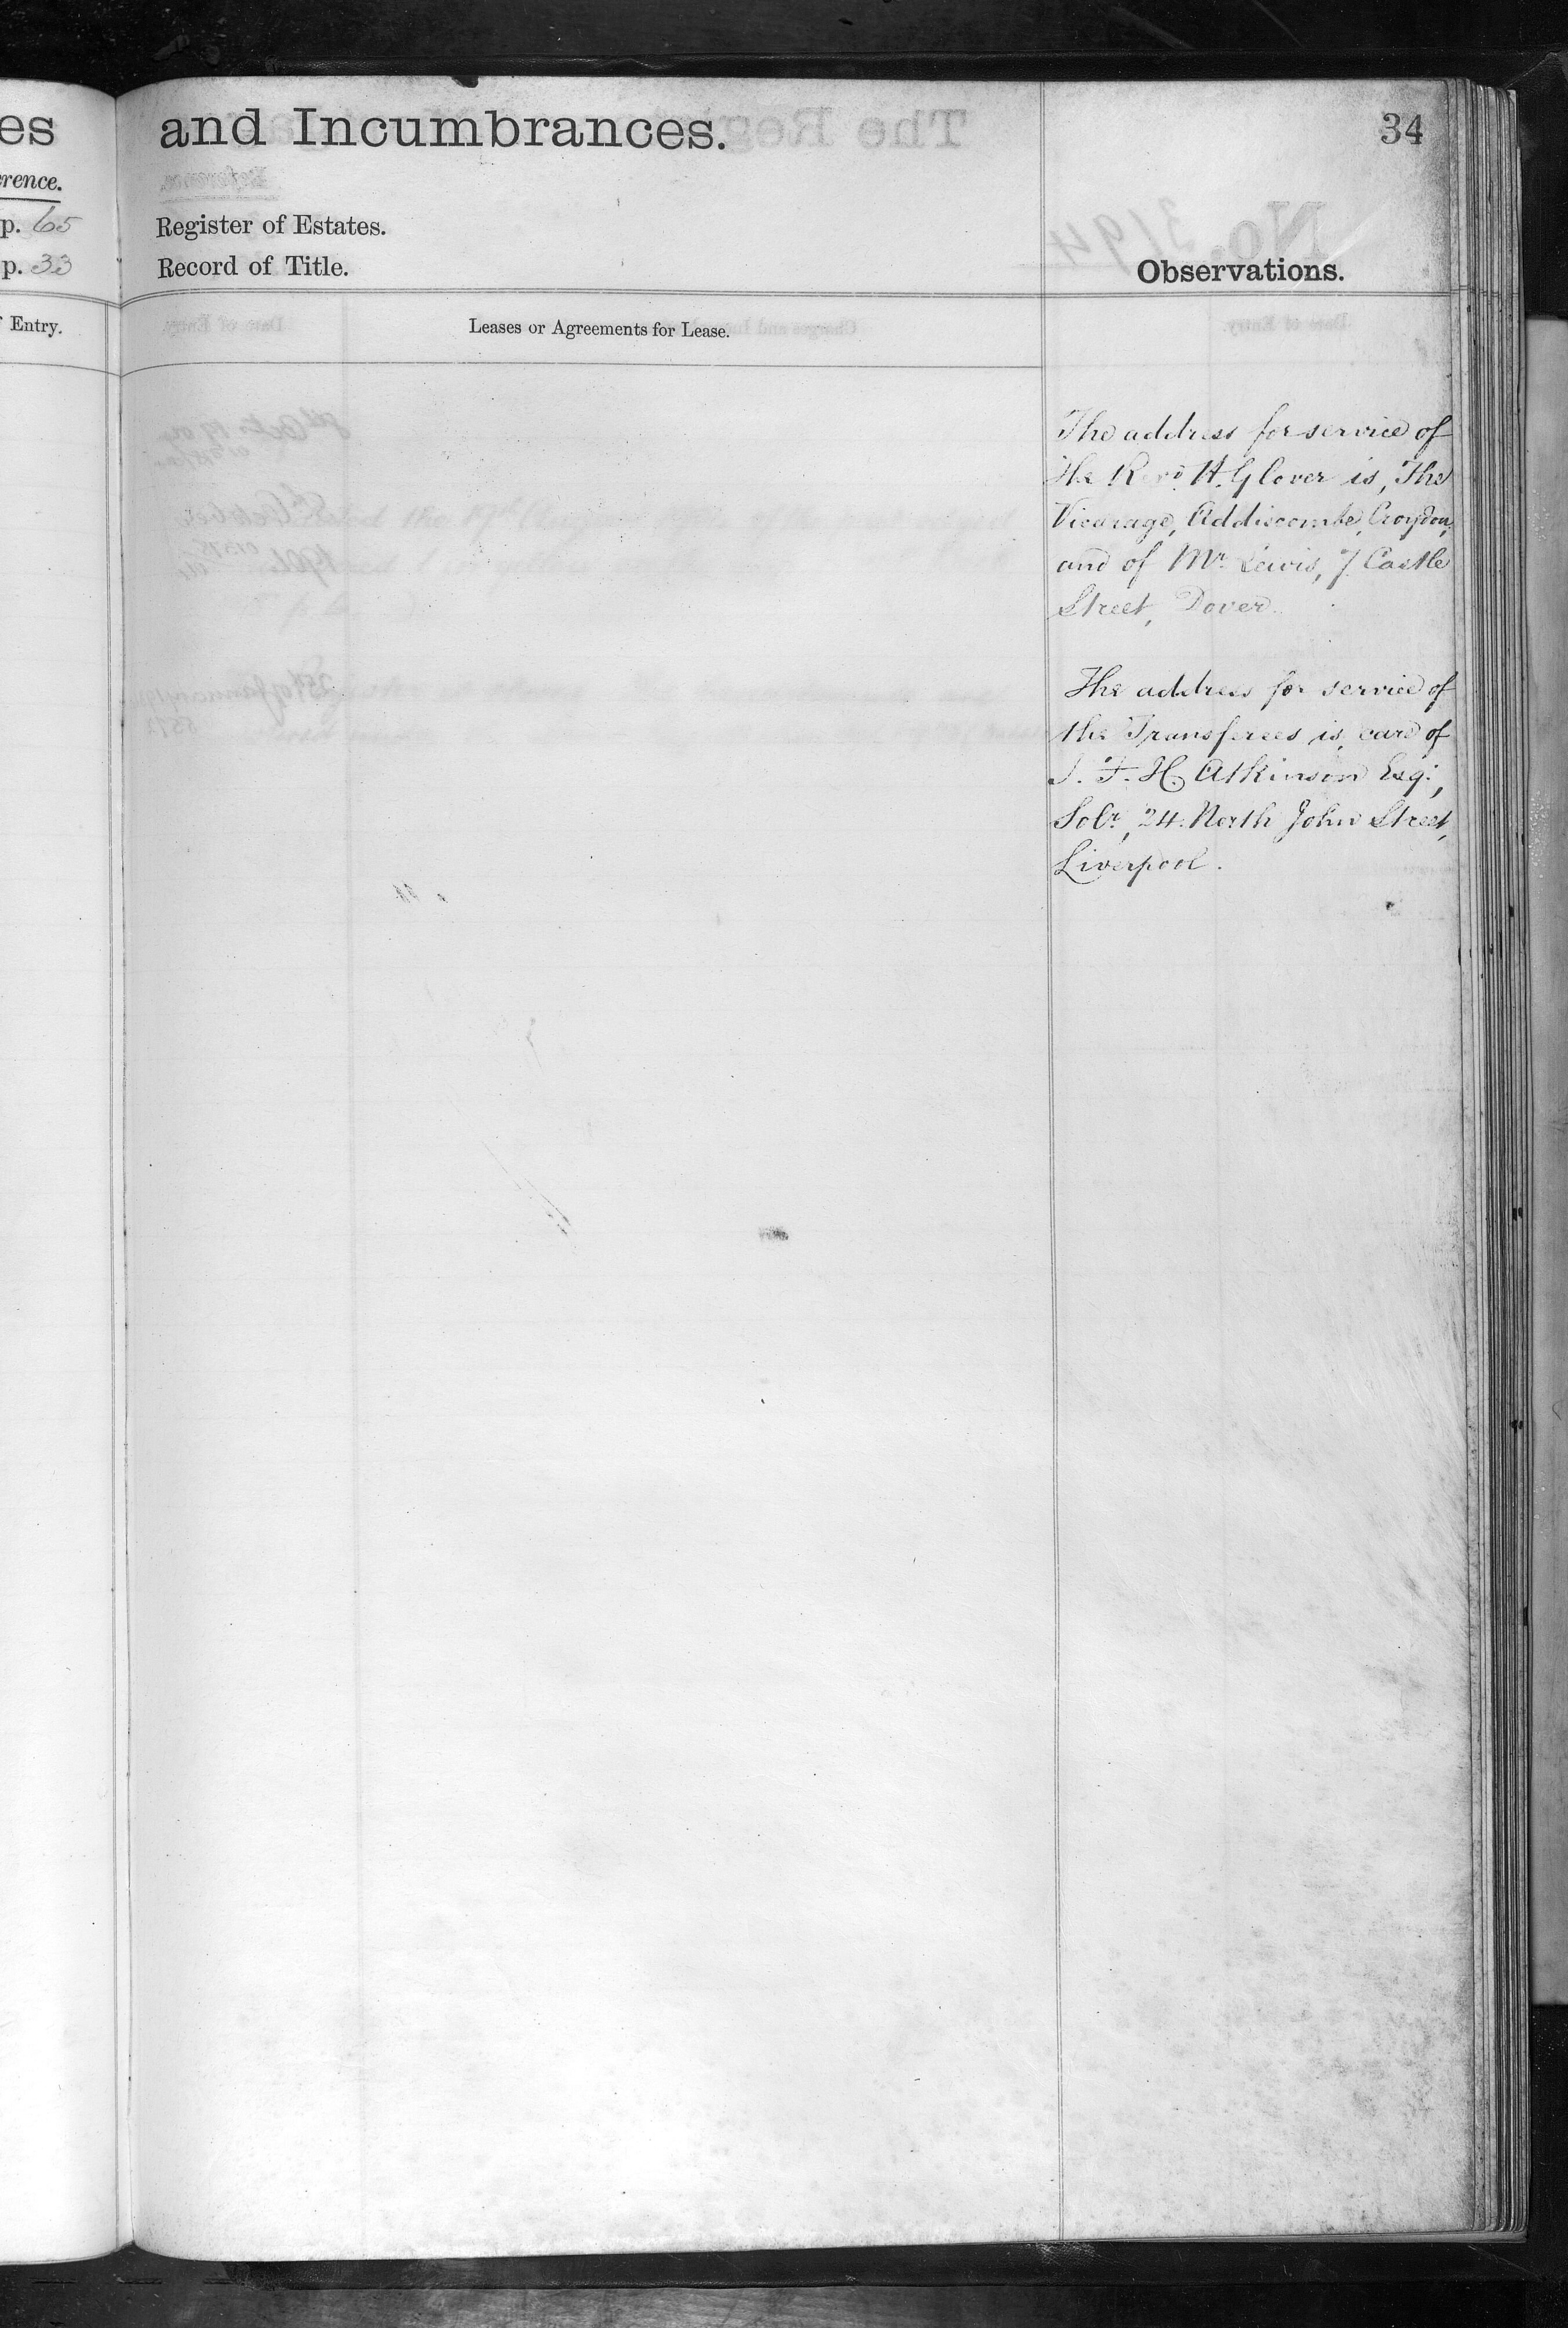 es
and Incumbrances.
34
rence.
p. 65
Register of Estates.
p. 33
Record of Title.
Observations.
Entry.
Leases or Agreements for Lease.
The address for service of
the Revd H. Glover is, The
Vicarage, Addiscombe, Croydon,
and of Mr Lewis, 7 Castle
Street, Dover.
The address for service of
the Transferees is, care of
J. F. H. Atkinson Esq:,
Solr, 24. North John Street,
Liverpool.